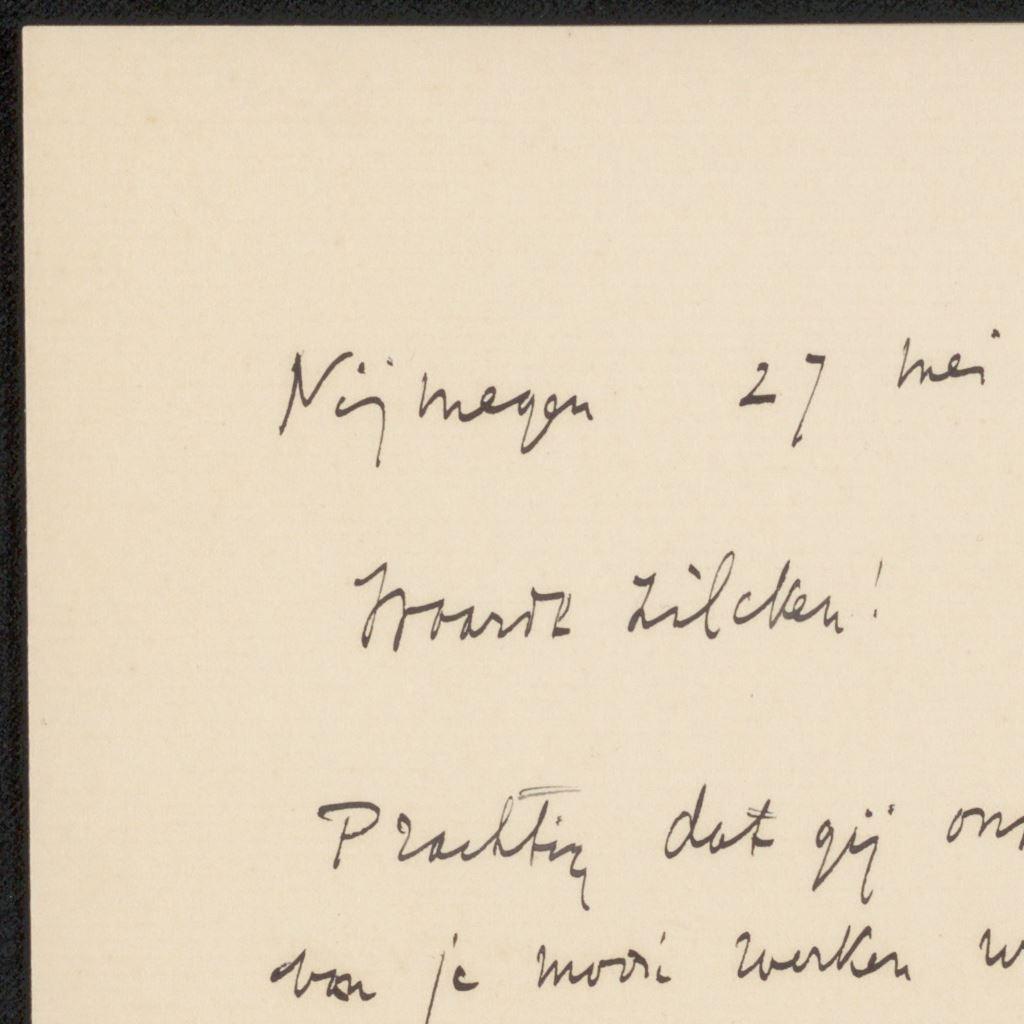 Nijmegen 27 mei
Waarde Zilcken!
Prachtig dat gij ons
van je mooi werken w